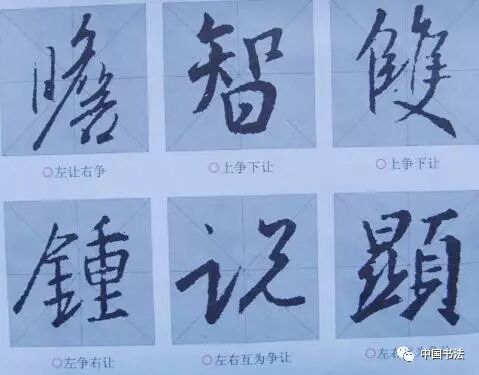 瞻 智 雙
○左让右争 ○上争下让 ○上争下让
鍾 説 顯
○左争右让 ○左右互为争让 ○左右
中国书法